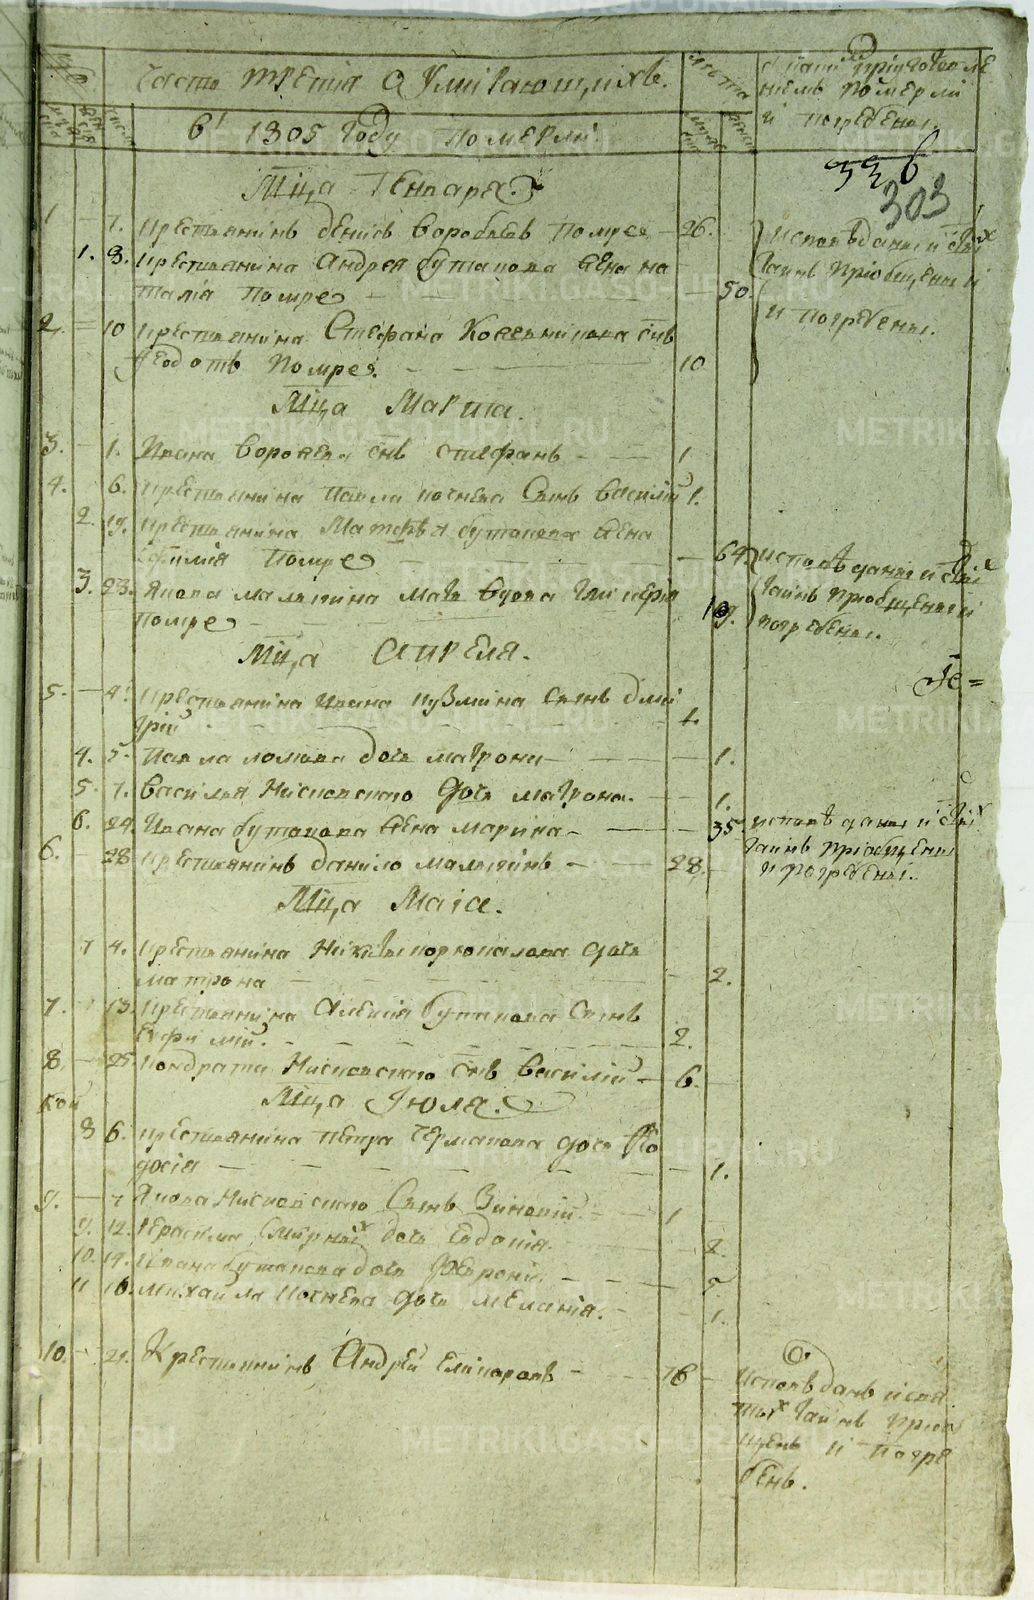 Часть третiя о умирающихъ.
в 1805 году померли.
и погребены.
336
303
Мца Генваря.
1 7. крестьянинъ денисъ воробьевъ помре 26.
1. 8. крестьянина Андрея бутакова жена на
талiя помре 50.
исповѣданы и стых
таинъ прiобщены и
и погребены.
2. 10 крестьянина Стефана Кожевникова снъ
федотъ помре. 10
Мца Марта.
3. 1. Ивана воробьева снъ стефанъ 1
4. 6. крестьянина Павла сынъ василiй 1.
2. 19. крестьянина Матфѣя бутакова жена
ефимiя помре 64.
исповѣданы и стых
таинъ прiобщены и
погребены.
3. 23. Якова малыгина мать вдова гликерiя
помре
Мца Апреля.
5. 4. крестьянина Ивана кузмина сынъ дми
трiй 1.
4. 5. Павла ломова дочь матрона 1.
5. 7. василья Нисковскаго дочь матрона. 1.
6. 24. Ивана бутакова жена марина 35.
исповѣданы и стых
таинъ прiобщены
и погребены.
6. 28 крестьянинъ данило малыгинъ 28.
Мца Маiа.
7 4. крестьянина Никиты дочь
матрона 2.
7. 13. крестьянина Алексiя бутакова сынъ
Ефимiй. 2.
8. 25. кондрата Нисковскаго снъ василiй 6.
Мца Iюля.
8 6. крестьянина Петра Ермакова дочь Фео
досiя 1.
9. 7 Якова Нисковскаго сынъ Зиновiй 1
9. 12. Герасима Смирных дочь евдокiя. 2.
10. 14. Ивана бутакова дочь
11 16. михаила дочь меланiя. 1.
10. 21. Крестьянинъ Андрей 76
исповѣданъ и свя
тых таинъ прiоб
щенъ и погре
бенъ.